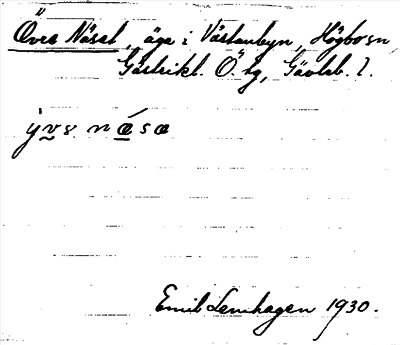 Över Näset, äga i Västanbyn, Högbo sn,
Gästrikl. Ö. tg, Gävleb. l.
Emil Lenhagen 1930.